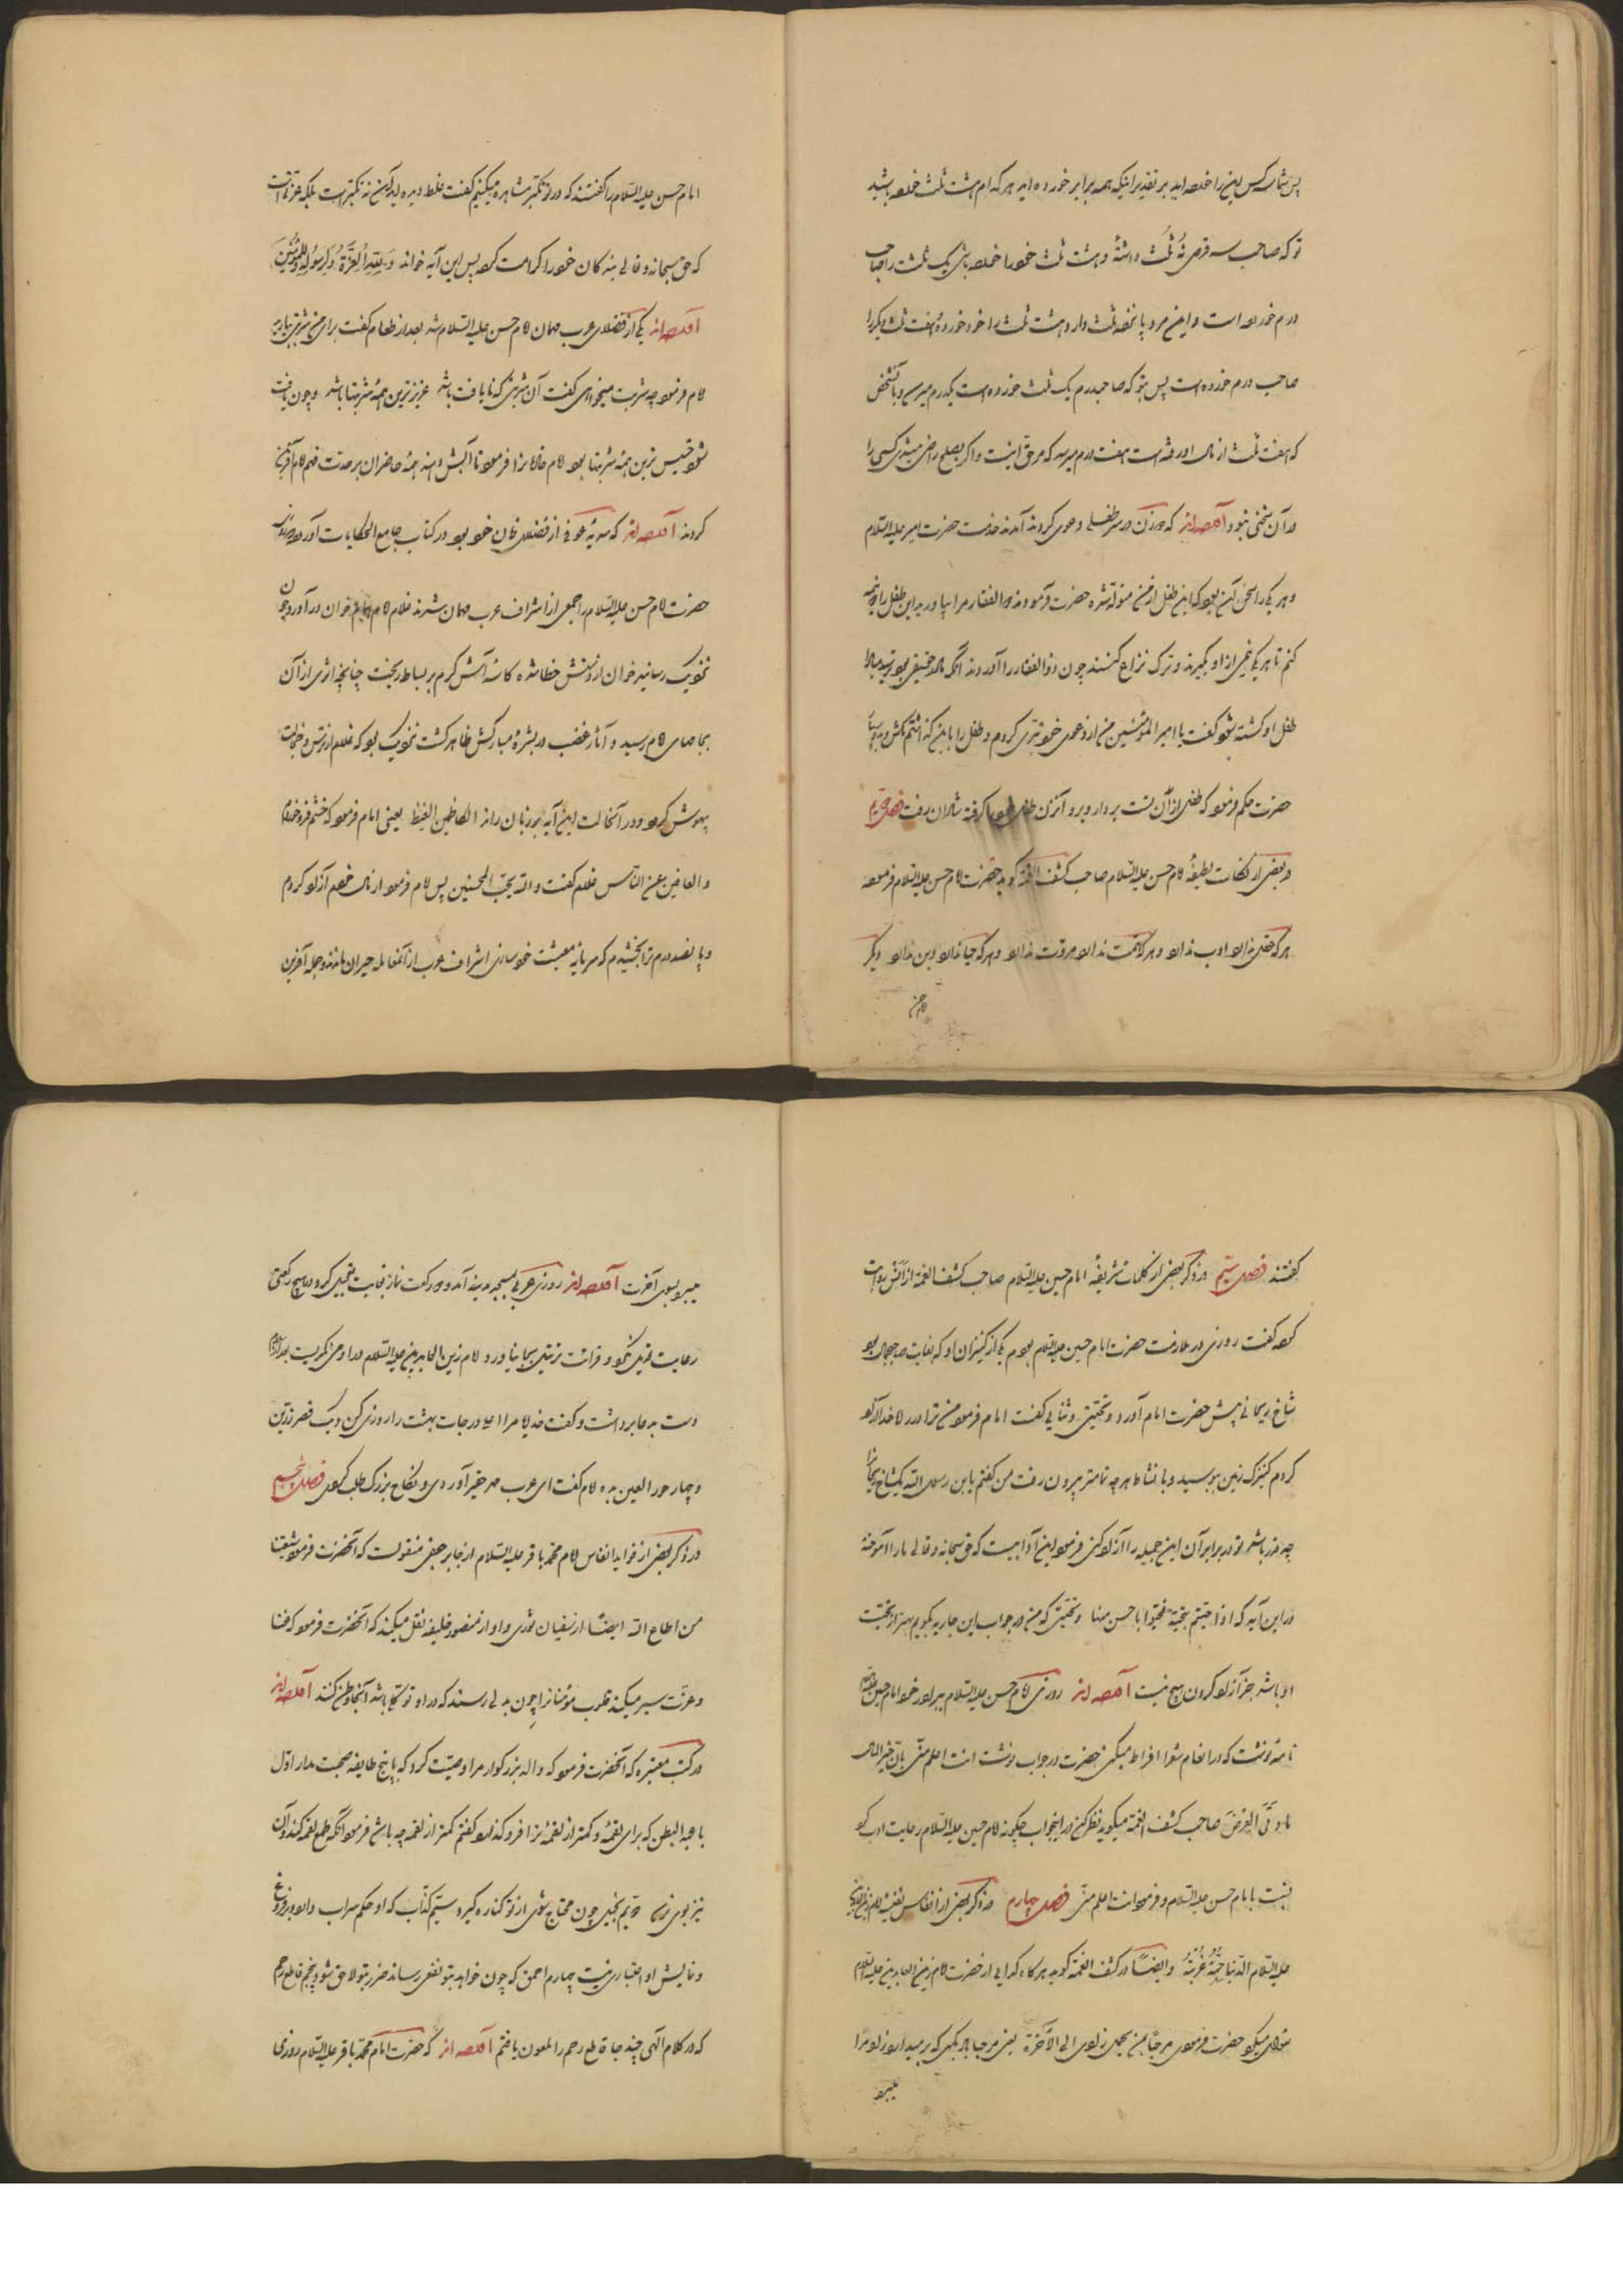 پس شما سه کس این را خورده‌اید بر تقدیر اینکه همه برابر خورده‌اید هر کدام هشت ثلث خورده باشید
تو که صاحب سه قرص نه ثلث داشتهٔ و هشت ثلث خود را خورده باشی یک ثلث را صاحب
درم خورده است و این مرد پانزده ثلث دارد هشت ثلث را خود خورده و هفت ثلث دیگر را
صاحب درم خورده است پس بتو که صاحبدرم یک ثلث خورده است یکدرم میرسد و بآنشخص
که هفت ثلث از مال او رفته است هفت درم میرسد که مر حق اینست و اگر بصلح راضی میشدی کسی را
در آن سخنی نبود آورده‌اند که دو زن در سر طفلی دعوی کردند آمدند خدمت حضرت امیر علیه السلام
و هر یک را سخن این بود که این طفل از من متولد شده حضرت فرمودند ذوالفقار مرا بیاورید این طفل را دو نیمه
کنم تا هر یک نیمی از او بگیرند و ترک نزاع کنند چون ذوالفقار را آوردند آنکه مادر حقیقی بود ترسید مبادا
طفل او کشته شود گفت یا امیر المؤمنین من از دعوی خود تبری کردم و طفل را باین گذاشتم مکش و بدو سپار
حضرت حکم فرمود که طفل از آن تست بردار و برو آنزن طفل خود را گرفته شادان برفت فصل دویم
در بعضی از نکات لطیفهٔ امام حسن علیه السلام صاحب کشف الغمه گوید حضرت امام حسن علیه السلام فرموده
هر که عقل ندارد ادب ندارد و هر که همت ندارد مروت ندارد و هر که حیا ندارد دین ندارد و دیگر
امام حسن علیه السلام را گفتند که در تو تکبر مشاهده میکنیم گفت غلط دیده‌اید این نه تکبر است بلکه عزت است
که حق سبحانه و تعالی بندگان خود را کرامت کرده پس این آیه خواند وَلِلّٰهِ الْعِزَّةُ وَلِرَسُولِهِ وَلِلْمُؤْمِنِينَ
آورده‌اند یکی از فضلای عرب مهمان امام حسن علیه السلام شد بعد از طعام گفت برای من شربتی بیارید
امام فرمود چه شربت میخواهی گفت آن شربتی که نایافت باشد عزیزترین همه شربتها باشد و چون یافت
شود خسیس ترین همه شربتها بود امام خادم را فرمود تا آبش دهند همه حاضران بر حدت فهم امام آفرین
کردند آورده‌اند که سدید عوفی از فضلای زمان خود بود در کتاب جامع الحکایات آورده
حضرت امام حسن علیه السلام را جمعی از اشراف عرب مهمان شدند غلام امام خوان در آورد چون
نزدیک رسانید خوان از دستش خطا شده کاسه آش گرم بر بساط ریخت چنانچه اثری از آن
بجامهای امام رسید و آثار غضب در بشرهٔ مبارکش ظاهر گشت نزدیک بود که غلام از ترس و خجالت
بیهوش گردد و در آنحالت این آیه بر زبان راند الکاظمین الغیظ یعنی امام فرمود که خشم فرو خوردم
و العافین عن الناس غلام گفت والله یحب المحسنین پس امام فرمود از مال خودم آزاد کردم
و پانصد درم ترا بخشیدم که سرمایه معیشت خود سازی اشراف عرب از آن معامله حیران ماندند و جمله آفرین
گفتند فصل سیم در ذکر بعضی از کلمات شریفهٔ امام حسین علیه السلام صاحب کشف الغمه از انس روایت
کرده گفت روزی در ملازمت حضرت امام حسین علیه السلام بودم یکی از کنیزان او که بغایت صاحبجمال بود
شاخ ریحانی پیش حضرت امام آورد و تحیتی و ثنایی گفت امام فرمود من ترا در راه خدا آزاد
کردم کنیزک زمین ببوسید و با نشاط هر چه تمامتر بیرون رفت من گفتم یابن رسول الله یک شاخ ریحان را
چه قدر باشد تو در برابر آن این جمیله را آزاد کنی فرمود این آدابیست که حق سبحانه و تعالی ما را آموخته
در این آیه که اذا حییتم بتحیة فحیوا باحسن منها و تحیتی که من در جواب این جاریه بگویم بهتر از تحیت
او باشد جز آزاد کردن هیچ نیست آورده‌اند روزی امام حسن علیه السلام ببرادر خود امام حسین علیه السلام
نامه نوشت که در انعام شعرا افراط میکنی حضرت در جواب نوشت انت اعلم منی بان خیر المال
ما وقی العرض صاحب کشف الغمه میگوید نظر کن در این جواب چگونه امام حسین علیه السلام رعایت ادب کرد
نسبت بامام حسن علیه السلام و فرمود انت اعلم منی فصل چهارم در ذکر بعضی از انفاس نفیسهٔ امام زین العابدین
علیه السلام ایضاً در کشف الغمه گوید هر گاه گدایی از حضرت امام زین العابدین علیه السلام
سؤال میکرد حضرت فرمودی مرحبا بمن یحمل زادی الی الآخرة یعنی مرحبا بر کسی که بر میدارد زاد مرا
میبرد
میبرد بسوی آخرت آورده‌اند روزی عربی بمسجد مدینه آمد و دو رکعت نماز بغایت تعجیل کرد و در هیچ رکعتی
رعایت تعدیل نکرد و قرائت ترتیل بجا نیاورد و امام زین العابدین علیه السلام در او می‌نگریست بعد از اتمام
دست بدعا برداشت و گفت خدایا مرا اعلا درجات بهشت را روزی کن و یک قصر زرین
و چهار حور العین بده امام گفت ای عرب مهر حقیر آوردی و نکاح بزرگ طلب کردی فصل پنجم
در ذکر بعضی از فواید انفاس امام محمد باقر علیه السلام از جابر جعفی منقولست که آنحضرت فرمود شیعتنا
من اطاع الله ایضاً از سفیان ثوری و او از منصور خلیفه نقل میکند که آنحضرت فرمود که غنا
و عزت سیر میکند در قلوب مؤمنان را چون بدلی رسند که در او توکل باشد آنجا وطن کنند آورده‌اند
در کتب معتبره که آنحضرت فرمود که والد بزرگوار مرا وصیت کرد که با پنج طایفه صحبت مدار اول
با عبد البطن که برای لقمهٔ و کمتر از لقمهٔ ترا فرو گذارد گفتم کمتر از لقمه چه باشد فرمود آنکه طمع لقمه کند و آن
نیز بوی نرسد دویم بخیل چون محتاج شوی از تو کناره گیرد سیم کذاب که او حکم سراب دارد و بر دروغ
و نمایش او اعتباری نیست چهارم احمق که چون خواهد بتو نفعی رساند ضرر بتو لاحق شود پنجم قاطع رحم
که در کلام الهی چند جا قاطع رحم را ملعون یافتم آورده‌اند که حضرت امام محمد باقر علیه السلام روزی